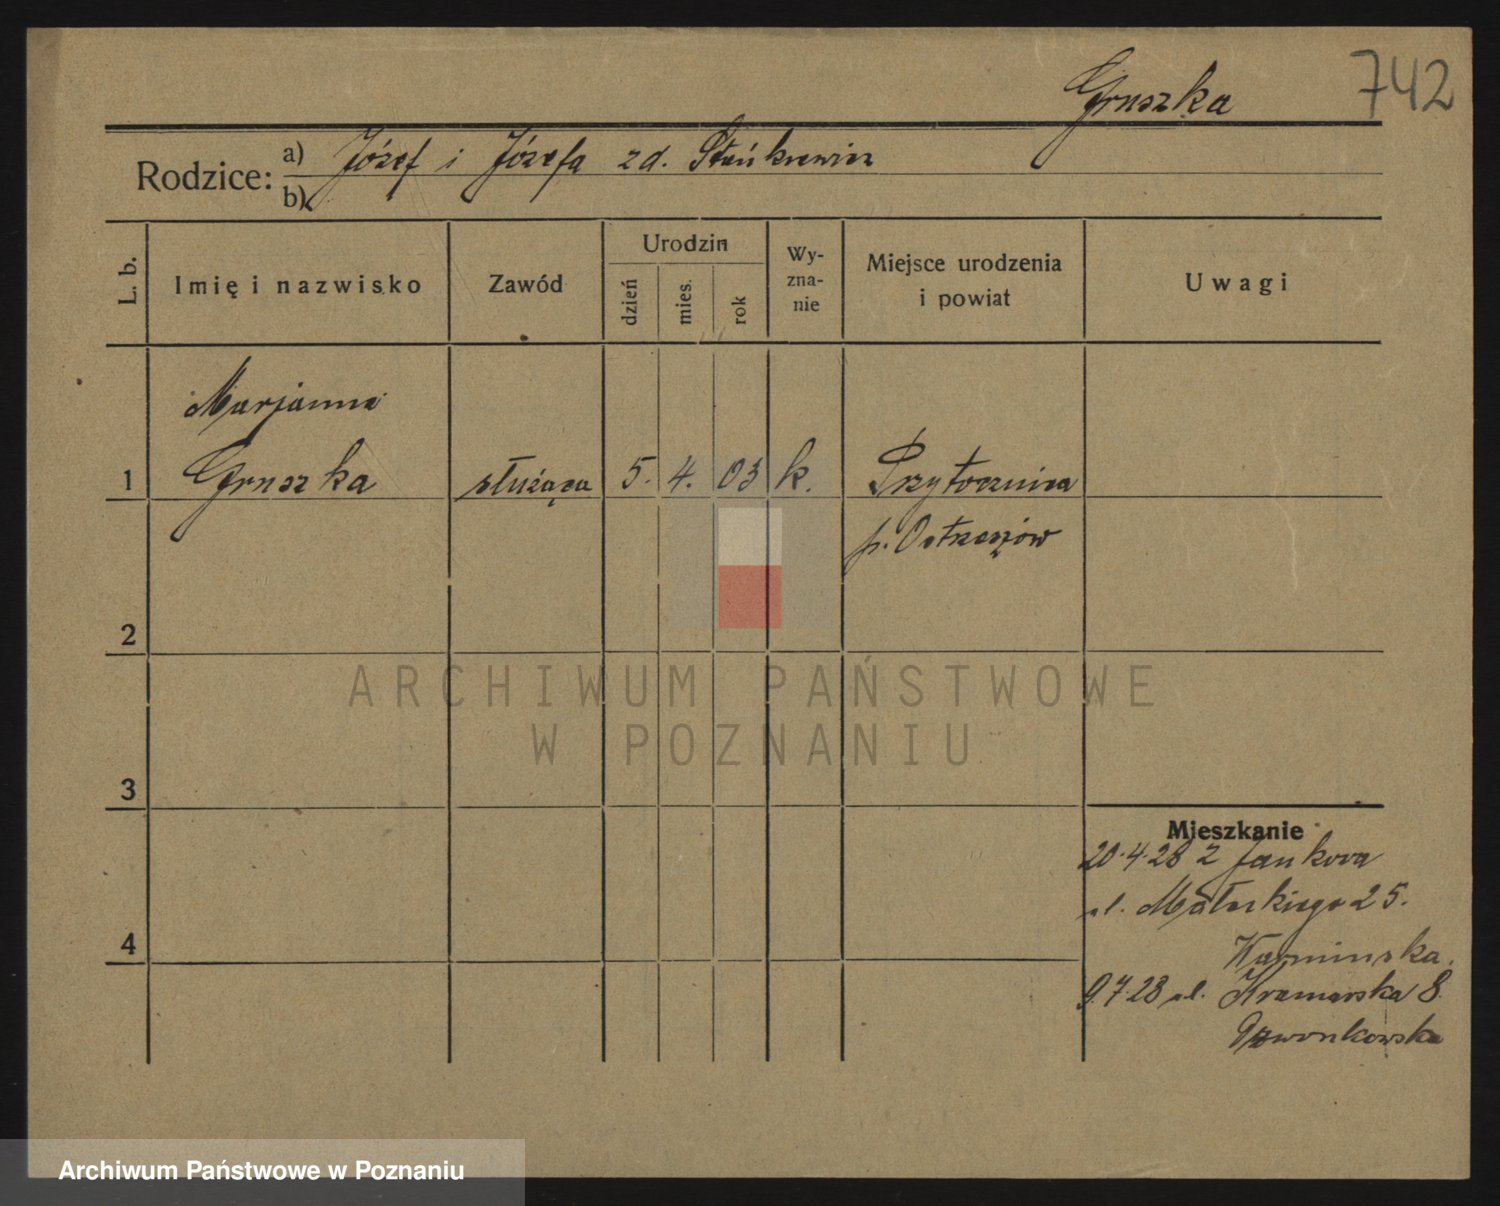 Gruszka 742
Rodzice: a) Józef i Józefa zd. Stańkiewicz
b)
L. b. Imię i nazwisko Zawód Urodzin dzień mies. rok Wy-zna-nie Miejsce urodzenia i powiat Uwagi
Marjanna
1 Gruszka służąca 5. 4. 03 k. Przytocznica
p. Ostrzeszów
2
ARCHIWUM PAŃSTWOWE
W POZNANIU
3
Mieszkanie
20.4.28 z Jankowa
ul. Małeckiego 25.
4
Karminska.
9.7.28 ul. Kramarska 8.
Dzwonkowska
Archiwum Państwowe w Poznaniu